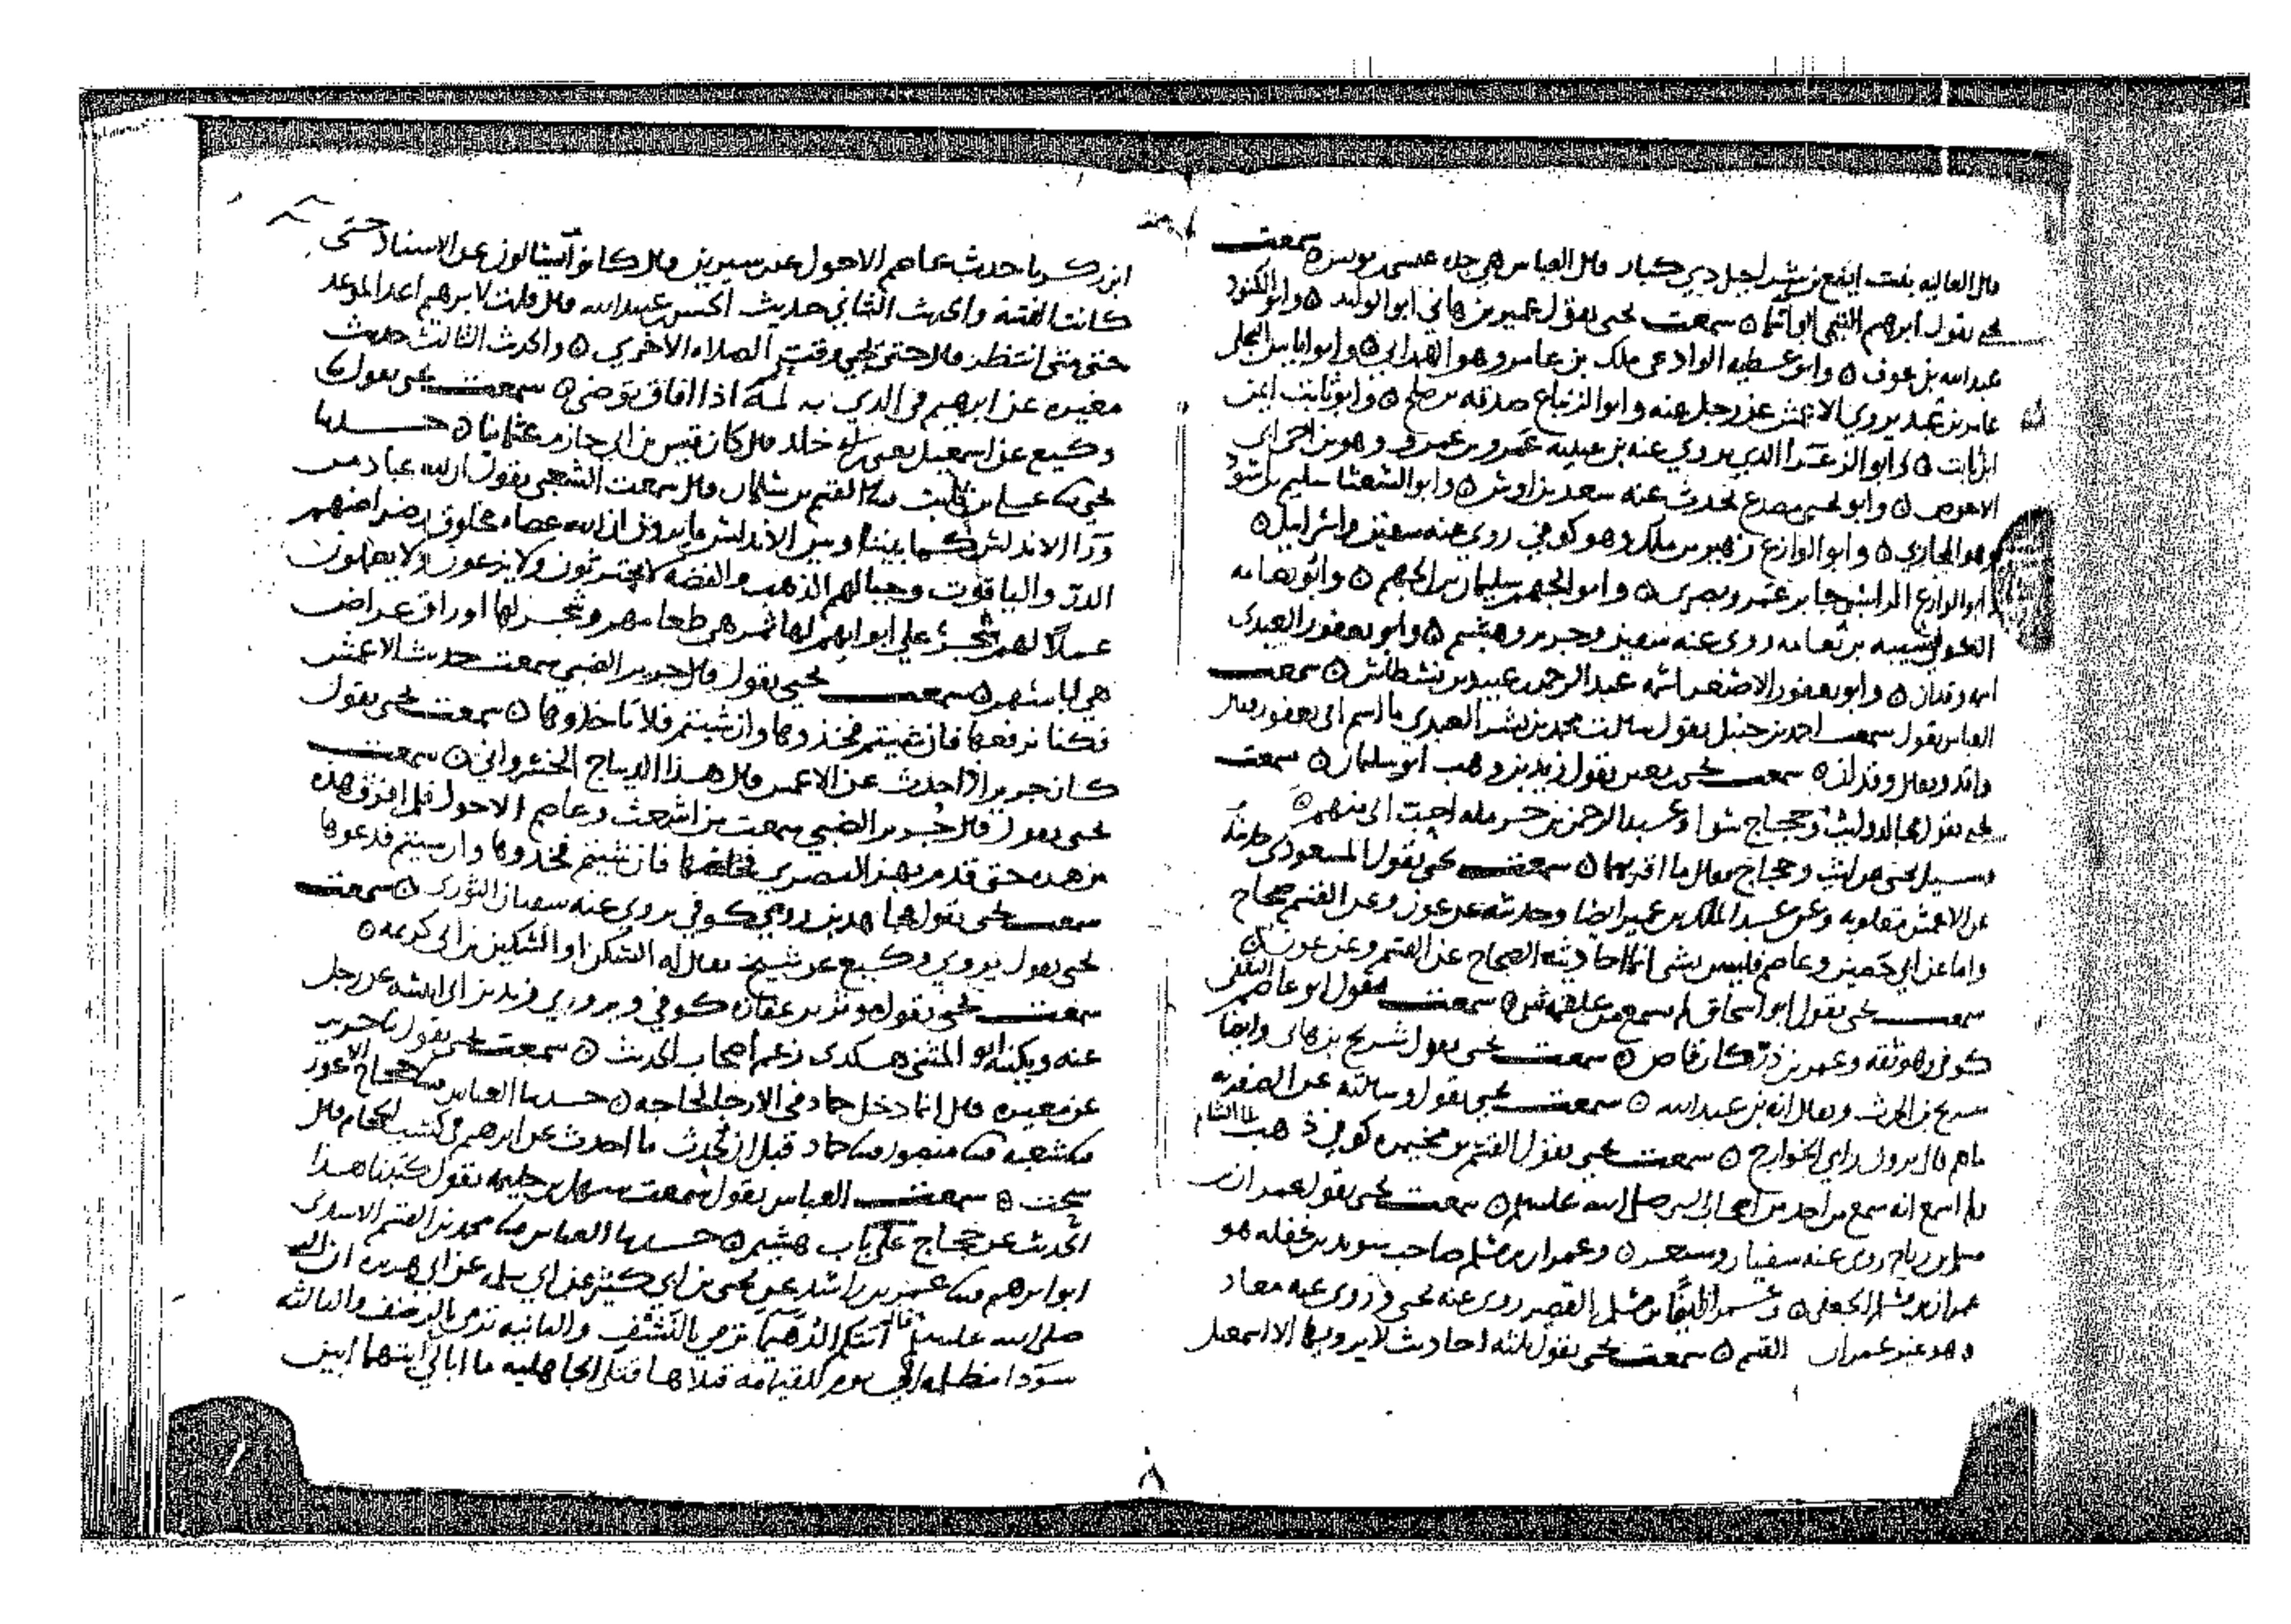 قال العاليه بنت ايفع بن شراحيل ذي كبار قال العباس هي جدة عيسى بن يونس ه سمعت
يحيى يقول ابرهيم التيمي ابو اسما ه سمعت يحيى يقول عمير بن هاني ابو الوليد ه وابو الكنود
عبد الله بن عوف ه وابو عطيه الوادعي ملك بن عامر وهو الهمداني ه وابو اياس البجلي
عامر بن عبده يروي الاعمش عن رجل عنه وابو الزنباع صدقه بن صلح ه وابو ثابت ايمن
ابن ثابت ه وابو الزعرا الذي يروي عنه بن عيينه عمرو بن عمرو وهو بن اخي ابي
الاحوص ه وابو يحيى مصدع يحدث عنه سعد بن اوس ه وابو الشعثا سليم بن اسود
وهو المحاربي ه وابو الوازع زهير بن ملك وهو كوفي روى عنه سفين واسرائيل ه
ابو الوازع الراسبي جابر بن عمرو بصري ه وابو الجهم سليمان بن الجهم ه وابو نعامه
شيبه بن نعامه روى عنه سفين وجرير وهشيم ه وابو يعفور العبدي
اسمه وقدان ه وابو يعفور الاصغر اسمه عبد الرحمن بن عبيد بن نسطاس ه سمعت
العباس يقول سمعت احمد بن حنبل يقول سالت محمد بن بشر العبدي ما اسم ابي يعفور فقال
واقد ويقال وقدان ه سمعت يحيى بن معين يقول زيد بن وهب ابو سليمان ه سمعت
يحيى يقول مجالد وليث وحجاج سوا وعبد الرحمن بن حرمله احب الي منهم ه
وسيل يحيى عن ليث وحجاج فقال ما اقربهما ه سمعت يحيى يقول المسعودي حديثه
عن الاعمش مقلوبه وعن عبد الملك بن عمير ايضا وحديثه عن عون وعن القسم صحاح
واما عن ابي حصين وعاصم فليس بشي انما احاديثه الصحاح عن القسم وعن عون ه
سمعت يحيى يقول ابو اسحاق لم يسمع من علقمه شي ه سمعت يقول ابو عاصم الثقفي
كوفي وهو ثقه وعمر بن ذر كان قاص ه سمعت يحيى يقول شريح بن هانى وايضا
شريح بن الحرث ويقال انه بن عبد الله ه سمعت يحيى يقول وسالته عن الصفريه
فقال يرون راي الخوارج ه سمعت يحيى يقول القسم بن مخيمره كوفي ذهب الى الشام
ولم اسمع انه سمع من احد من اصحاب النبي صلى الله عليه وسلم ه سمعت يحيى يقول عمران بن
مسلم بن رياح روى عنه سفيان ومسعر ه وعمران بن مسلم صاحب سويد بن غفله هو
عمران بن مسلم الجعفي ه وعمران ايضا بن مسلم القصير روى عنه يحيى وروى عنه معاذ
وهو غير عمران القسم ه سمعت يحيى يقول ثلثه احاديث لا يرويها الا اسمعيل
ابن زكريا حديث عاصم الاحول عن بن سيرين قال كانوا لا يسالون عن الاسناد حتى
كانت الفتنة والحديث الثاني حديث الحسن بن عبيد الله قال قلت لابرهيم اعد الموعد
حتى متى انتظر قال حتى يجي وقت الصلاه الاخرى ه والحديث الثالث حديث
مغيره عن ابرهيم في الذي به لمم اذا افاق توضى ه سمعت يحيى يقول
وكيع عن اسمعيل يعني بن ابي خالد قال كان قيس بن ابي حازم عثمانيا ه حدثنا
يحيى علي بن ثابت القسم بن سلمان قال سمعت الشعبي يقول ان لله عباد من
ورا الاندلس كما بيننا وبين الاندلس ما يرون ان الله عصاه مخلوق رضراضهم
الدر والياقوت وجبالهم الذهب والفضه لا يحترثون ولا يزرعون ولا يعملون
عملا لهم شجر على ابوابهم لها ثمر هي طعامهم وشجر لها اوراق عراض
هي لباسهم ه سمعت يحيى يقول قال جرير الضبي سمعت حديث الاعمش
فكنا نرقعها فان شيتم فخذوها وان شيتم فلا تاخذوها ه سمعت يحيى يقول
كان جرير اذا حدث عن الاعمش قال هذا الديباج الخسرواني ه سمعت
يحيى يقول قال جرير الضبي سمعت من اشعث وعاصم الاحول فلم افرق هذه
من هذه حتى قدم بهز البصري فخلصها فان شيتم فخذوها وان شيتم فدعوها
سمعت يحيى يقول بن رومي كوفي يروي عنه سفيان الثوري ه سمعت
يحيى يقول يروي وكيع عن شيخ يقال له السكن او السكين بن ابي كريمه ه
سمعت يحيى يقول هوثر بن عفان كوفي ويروي مزيد بن ابي انيسه عن رجل
عنه ويكنيه ابو المثنى هكذى زعم اصحاب الحديث ه سمعت يحيى يقول جرير
عن مغيره قال انما دخل حماد في الارجا لحاجه ه حدثنا العباس حجاج الاعور
شعبه منصور حماد قبل ان يحدث ما احدث عن ابرهيم في كسب الحجام قال
سحت ه سمعت العباس يقول سمعت سهل بن حليمه يقول كتبنا هذا
الحديث عن حجاج على باب هشيم ه حدثنا العباس محمد بن القسم الاسدي
ابو ابرهيم عمر بن راشد عن يحيى بن ابي كثير عن ابي سلمه عن ابي هريره ان النبي
صلى الله عليه قال اتتكم الدهيما ترمي بالنشف والثانيه ترمي بالرضف والثالثه
سودا مظلمه الى يوم القيامه قتلاها قتلى الجاهليه ما ابالي ايتهما
٨